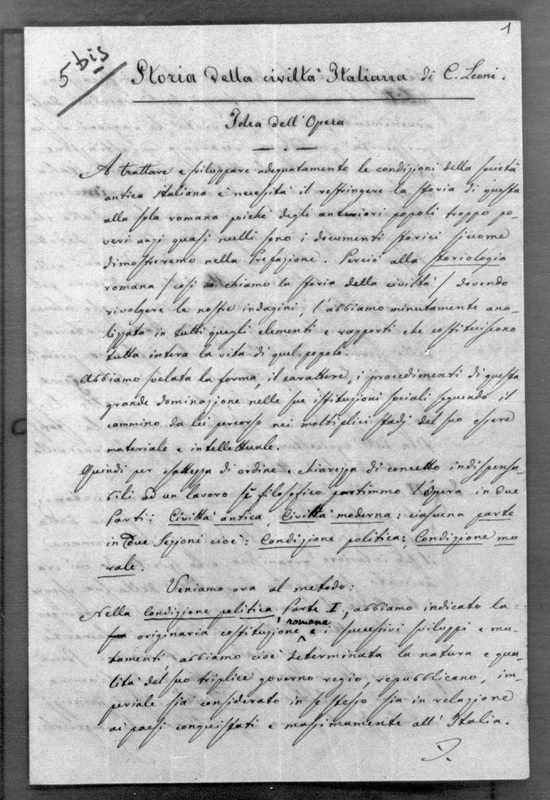 1
5 bis
Storia della civiltà Italiana di C. Leoni.
Idea dell'Opera
A trattare e sviluppare adeguatamente le condizioni della società
antica italiana è necessità il restringere la storia di questa
alla sola romana poichè degli anteriori popoli troppo po-
veri anzi quasi nulli sono i documenti storici siccome
dimostreremo nella Prefazione. Perciò alla storiologia
romana (così io chiamo la storia della civiltà) dovendo
rivolgere le nostre indagini, l'abbiamo minutamente ana-
lizzata in tutti quegli elementi e rapporti che costituiscono
tutta intera la vita di quel popolo.
Abbiamo svelata la forma, il carattere, i procedimenti di questa
grande dominazione nelle sue istituzioni sociali seguendo il
cammino da lei percorso nei molteplici stadj del suo essere
materiale e intellettuale.
Quindi per esattezza di ordine e chiarezza di concetto indispensa-
bili ad un lavoro sì filosofico partimmo l'Opera in due
Parti: Civiltà antica, Civiltà moderna: ciascuna parte
in due Sezioni cioè: Condizione politica; Condizione mo-
rale.
Veniamo ora al metodo:
Nella Condizione politica Parte I, abbiamo indicato la
originaria costituzione romana e i successivi sviluppi e mu-
tamenti abbiamo cioè determinata la natura e qua-
lità del suo triplice governo regio, repubblicano, im-
periale sia considerato in se stesso sia in relazione
ai paesi conquistati e massimamente all'Italia.